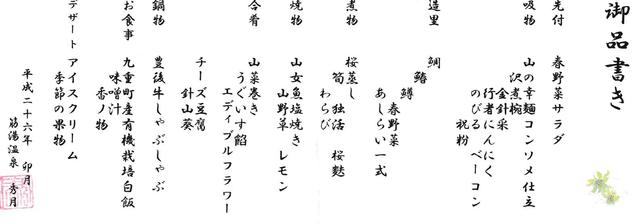 御品書き
先付 春野菜サラダ
吸物 山の幸麺コンソメ仕立
沢煮椀
金針采
行者にんにく
のびるベーコン
祝粉
造里 鯛
鰆
鱒
春野菜
あしらい一式
煮物 桜蒸し
筍 独活 桜麩
わらび
焼物 山女魚塩焼き
山野草 レモン
合肴 山菜巻き
うぐいす餡
エディブルフラワー
チーズ豆腐
針山葵
鍋物 豊後牛しゃぶしゃぶ
お食事 九重町産有機栽培白飯
味噌汁
香ノ物
デザート アイスクリーム
季節の果物
平成二十六年 卯月
筋湯温泉 秀月